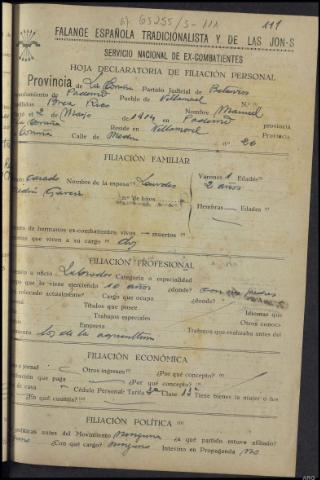 65255/S-11A
111
FALANGE ESPAÑOLA TRADICIONALISTA Y DE LAS JON-S
SERVICIO NACIONAL DE EX-COMBATIENTES
HOJA DECLARATORIA DE FILIACIÓN PERSONAL
Provincia de La Coruña Partido Judicial de Betanzos
Paderne Pueblo de Villamorel N.º
Nombre Manuel
2 de Mayo de 1914 en Paderne provincia
Coruña Reside en Villamorel Provincia
Coruña Calle de nº 26
FILIACIÓN FAMILIAR
casado Nombre de la esposa Lourdes Varones 1 Edades
García nº de hijos 2 años
Hembras Edades
de hermanos ex-combatientes: vivos muertos
que viven a su cargo
FILIACIÓN PROFESIONAL
u oficio Labrador Categoría o especialidad
que la viene ejerciendo 10 años ¿donde? con sus padres
colocado actualmente? Cargo que ocupa ¿donde?
Títulos que posee Idiomas que
Trabajos especiales Otros conoc.
Empresa Trabajos que realizaba antes del
los de la agricultura
FILIACIÓN ECONÓMICA
jornal Otros ingresos ¿Por qué concepto?
que paga ¿Por qué concepto?
de casa Cédula Personal: Tarifa 3ª Clase 13ª Tiene bienes la mujer o los
¿En qué cuantía?
FILIACIÓN POLÍTICA
políticas antes del Movimiento ninguna ¿a qué partido estuvo afiliado?
¿Con qué cargo? ninguno Intervino en Propaganda no